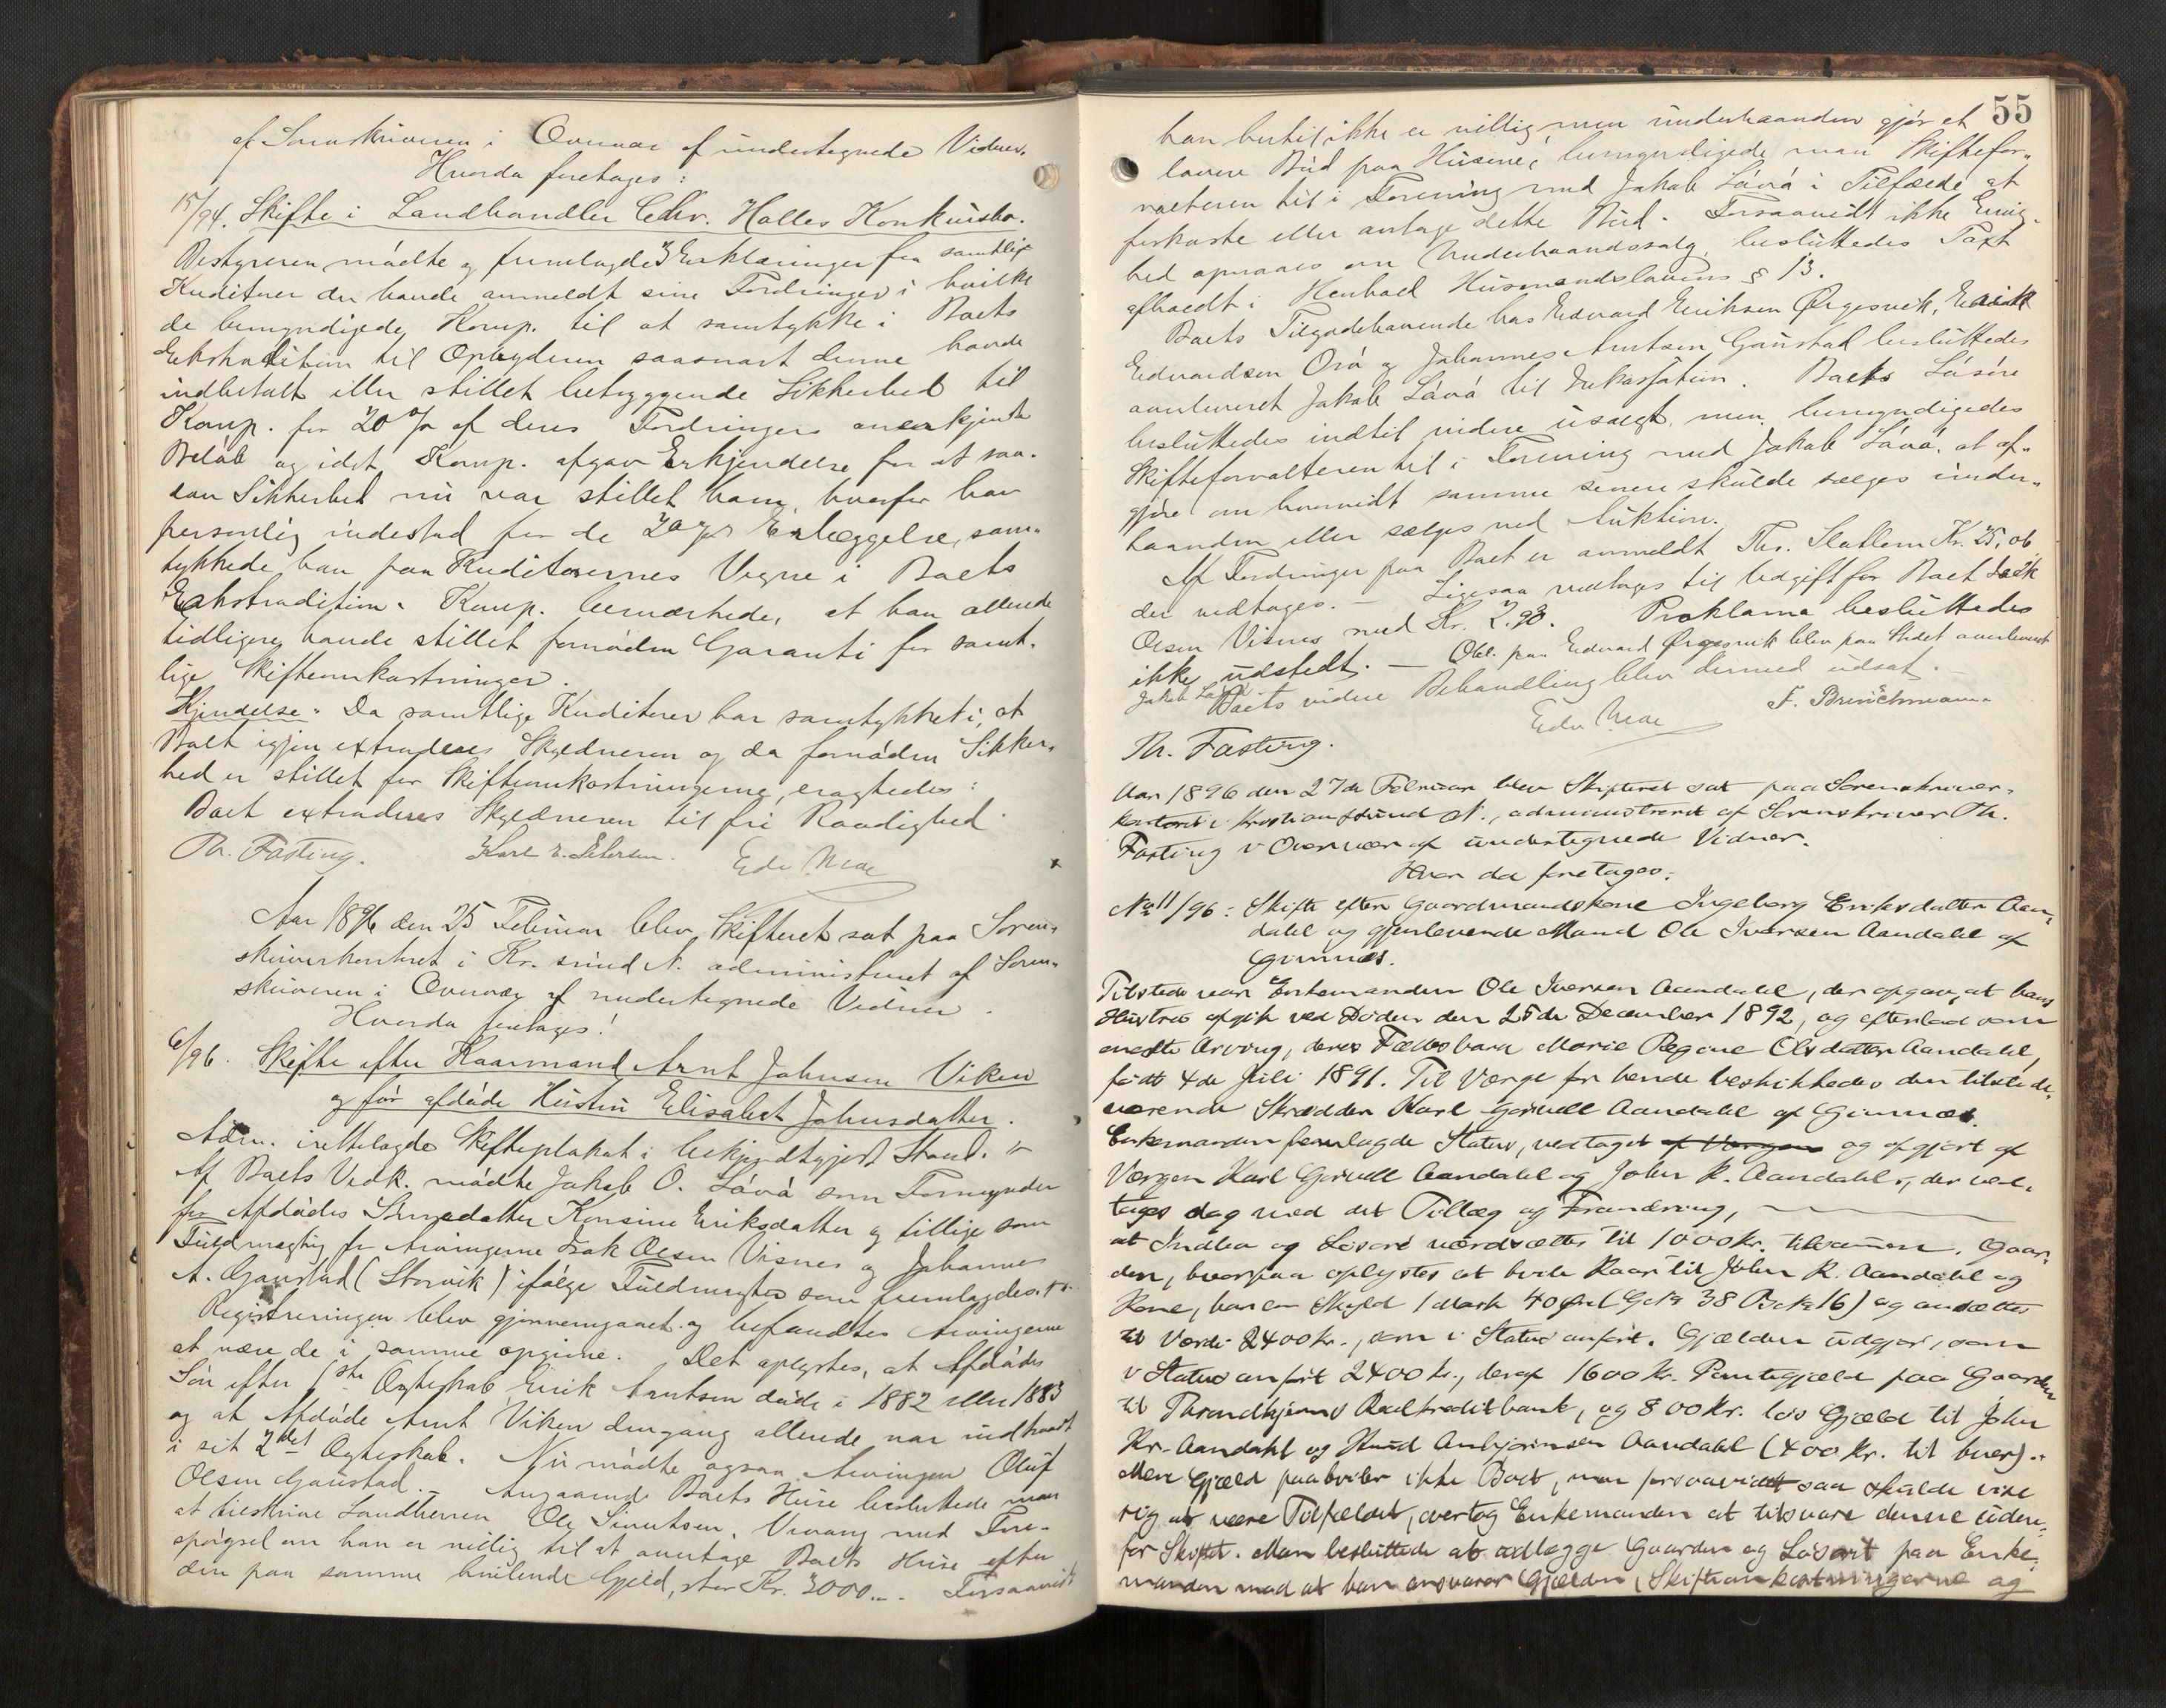 af Sorenskriveren i Overvær af undertegnede Vidner.
Hvorda foretages:
15/94. Skifte i Landhandler Chr. Halles Konkursbo.
Bestyreren mødte og fremlagde 3 Erklæringer fra samtlige
Kreditorer der havde anmeldt sine Fordringer i hvilke
de bemyndigede Komp. til at samtykke i Boets
Ekstradition til Opbyderen saasnart denne havde
indbetalt eller stillet betryggende Sikkerhed til
Komp. for 20 % af deres Fordringers anerkjendte
Beløb og idet Komp. afgav Erkjendelse for at saa-
dan Sikkerhed nu var stillet ham, hvorfor han
personlig indestod for de 20 % Erlæggelse, sam-
tykkede han paa Kreditorernes Vegne i Boets
Ekstradition. Komp. bemærkede, at han allerede
tidligere havde stillet fornøden Garanti for samt-
lige Skifteomkostninger.
Kjendelse. Da samtlige Kreditorer har samtykket i, at
Boet igjen extraderes Skyldneren og da fornøden Sikker-
hed er stillet for Skifteomkostningerne, eragtedes:
Boet extraderes Skyldneren til fri Raadighed.
Th. Fasting. Karl E. Petersen. Edv. Moe
Aar 1896 den 25 Februar blev Skifteret sat paa Soren-
skriverkontoret i Kr.sund N. administreret af Soren-
skriveren i Overvær af undertegnede Vidner.
Hvorda foretages:
6/96. Skifte efter Kaarmand Arnt Johnsen Viken
og før afdøde Hustru Elisabet Johnsdatter.
Adm. irettelagde Skifteplakat i bekjendtgjort Stand.
Af Boets Vedk. mødte Jakob O. Låvå som Formynder
for Afdødes Sønnedatter Konsine Eriksdatter og tillige som
Fuldmægtig for Arvingerne Isak Olsen Visnes og Johannes
A. Gaustad (Storvik) ifølge Fuldmagter som fremlagdes.
Registreringen blev gjennemgaaet og befandtes Arvingerne
at være de i samme opgivne. Det oplystes, at Afdødes
Søn efter 1ste Ægteskab Erik Arntsen døde i 1882 eller 1883
og at Afdøde Arnt Viken dengang allerede var indtraadt
i sit 2det Ægteskab. Nu mødte ogsaa Arvingen Oluf
Olsen Gaustad. Angaaende Boets Huse besluttede man
at tilskrive Landherren Ole Sivertsen Vevang med Fore-
spørgsel om han er villig til at overtage Boets Huse efter
den paa samme hvilende Gjeld, stor Kr. 3000.. Forsaavidt
55
han hertil ikke er villig men underhaanden gjør et
lavere Bud paa Husene, bemyndigede man Skiftefor-
valteren til i Forening med Jakob Låvå i Tilfælde at
forkaste eller antage dette Bud. Forsaavidt ikke Enig-
hed opnaaes om Underhaandssalg besluttedes Taxt
afholdt i Henhold Husmandslovens § 13.
Boets Tilgodehavende hos Edvard Eriksen Ørgesvik,
Edvardsen Orå og Johannes Arntsen Gaustad besluttedes
overleveret Jakob Låvå til Inkassation. Boets Løsøre
besluttedes indtil videre usolgt, men bemyndigedes
Skifteforvalteren til i Forening med Jakob Låvå, at af-
gjøre om hvorvidt samme senere skulde sælges under-
haanden eller sælges ved Auktion.
Af Fordringer paa Boet er anmeldt Thr. Slatlem Kr. 25,06
der vedtages. – Ligesaa vedtages til Udgift for Boet Isak
Olsen Visnes med Kr. 2.93. Proklama besluttedes
ikke udstedt. – Obl. paa Edvard Ørgesvik blev paa Stedet overleveret
Jakob Låvå
Boets videre Behandling blev dermed udsat.
Th. Fasting. Edv. Moe F. Brinchmann
Aar 1896 den 27de Februar blev Skifteret sat paa Sorenskriver-
kontoret i Kristianssund N., administreret af Sorenskriver Th.
Fasting i Overvær af undertegnede Vidner.
Hvor da foretages:
No 11/96: Skifte efter Gaardmandskone Ingeborg Eriksdatter Aan-
dahl og gjenlevende Mand Ole Iversen Aandahl af
Gimnæs.
Tilstede var Enkemanden Ole Iversen Aandahl, der opgav, at hans
Hustru afgik ved Døden den 25de December 1892, og efterlod som
eneste Arving, deres Fællesbarn Marie Regine Olsdatter Aandahl,
født 4de Juli 1891. Til Værge for hende beskikkedes den tilstede-
værende Skrædder Karl Gørvell Aandahl af Gimnæs.
Enkemanden fremlagde Status, vedtaget af Værgen og afgjort af
Værgen Karl Gørvell Aandahl og John K. Aandahl, der ved-
toges dog med det Tillæg og Forandring,
at Indbo og Løsøre værdsættes til 1000 kr. tilsammen. Gaar-
den, hvorpaa oplystes at hvile Kaar til John K. Aandahl og
Kone, har en Skyld 1 Mark 40 Øre (G. No 38 B. No 16) og ansættes
til Værdi 2400 kr., som i Status anført. Gjælden udgjør, som
i Status anført 2400 kr., deraf 1600 kr. Pantegjæld paa Gaarden
til Throndhjems Realkreditbank, og 800 kr. løs Gjæld til John
Kr. Aandahl og Knud Anbjørnsen Aandahl (400 kr. til hver).
Mere Gjæld paahviler ikke Boet, men forsaavidt saa skulde vise
sig at være Tilfældet, overtog Enkemanden at tilsvare denne uden-
for Skiftet. Man besluttede at udlægge Gaarden og Løsøret paa Enke-
manden mod at han ansvarer Gjælden, Skifteomkostningerne og